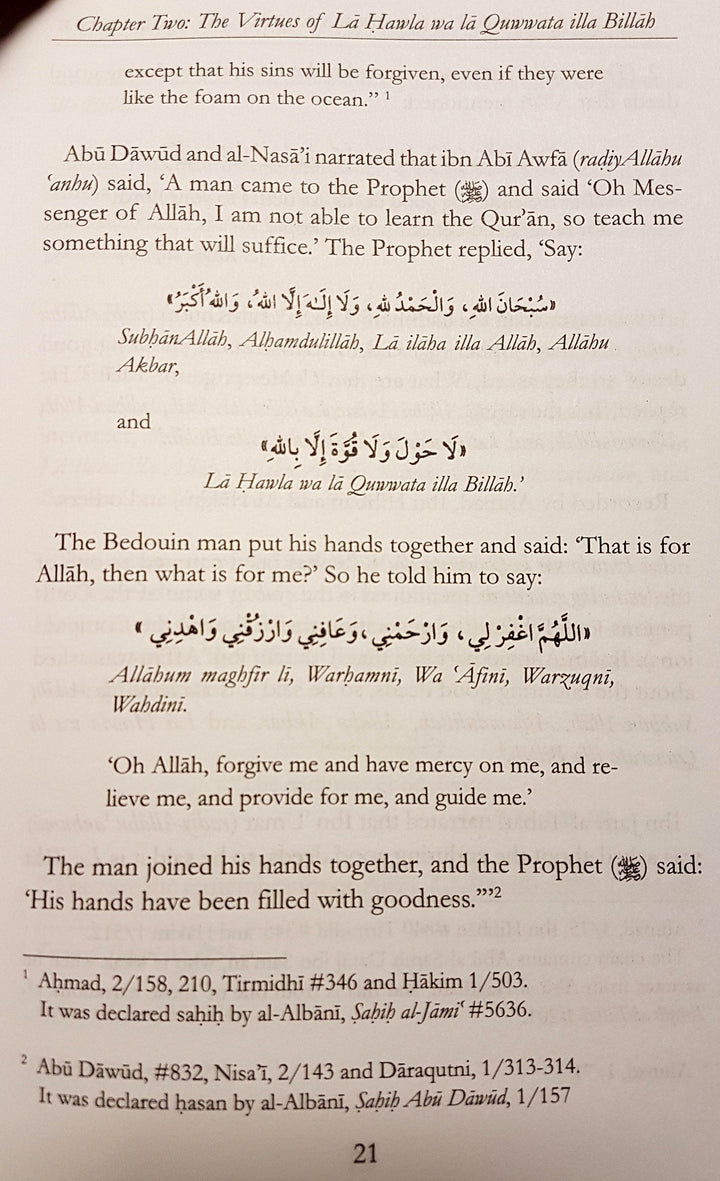 Chapter Two: The Virtues of Lā Ḥawla wa lā Quwwata illa Billāh
except that his sins will be forgiven, even if they were
like the foam on the ocean.” ¹
Abū Dāwūd and al-Nasā’i narrated that ibn Abī Awfā (raḍiyAllāhu
‘anhu) said, ‘A man came to the Prophet (ﷺ) and said ‘Oh Mes-
senger of Allāh, I am not able to learn the Qur’ān, so teach me
something that will suffice.’ The Prophet replied, ‘Say:
«سُبْحَانَ اللهِ، وَالْحَمْدُ للهِ، وَلَا إِلَـٰهَ إِلَّا اللهُ، وَاللهُ أَكْبَرُ»
SubḥānAllāh, Alḥamdulillāh, Lā ilāha illa Allāh, Allāhu
Akbar,
and
«لَا حَوْلَ وَلَا قُوَّةَ إِلَّا بِاللهِ»
Lā Ḥawla wa lā Quwwata illa Billāh.’
The Bedouin man put his hands together and said: ‘That is for
Allāh, then what is for me?’ So he told him to say:
«اللَّهُمَّ اغْفِرْ لِي، وَارْحَمْنِي، وَعَافِنِي وَارْزُقْنِي وَاهْدِنِي»
Allāhum maghfir lī, Warḥamnī, Wa ‘Āfinī, Warzuqnī,
Wahdinī.
‘Oh Allāh, forgive me and have mercy on me, and re-
lieve me, and provide for me, and guide me.’
The man joined his hands together, and the Prophet (ﷺ) said:
‘His hands have been filled with goodness.’”²
¹ Aḥmad, 2/158, 210, Tirmidhī #346 and Ḥākim 1/503.
It was declared saḥiḥ by al-Albānī, Ṣaḥīḥ al-Jāmi‘ #5636.
² Abū Dāwūd, #832, Nisa’ī, 2/143 and Dāraqutni, 1/313-314.
It was declared ḥasan by al-Albānī, Ṣaḥīḥ Abū Dāwūd, 1/157
21